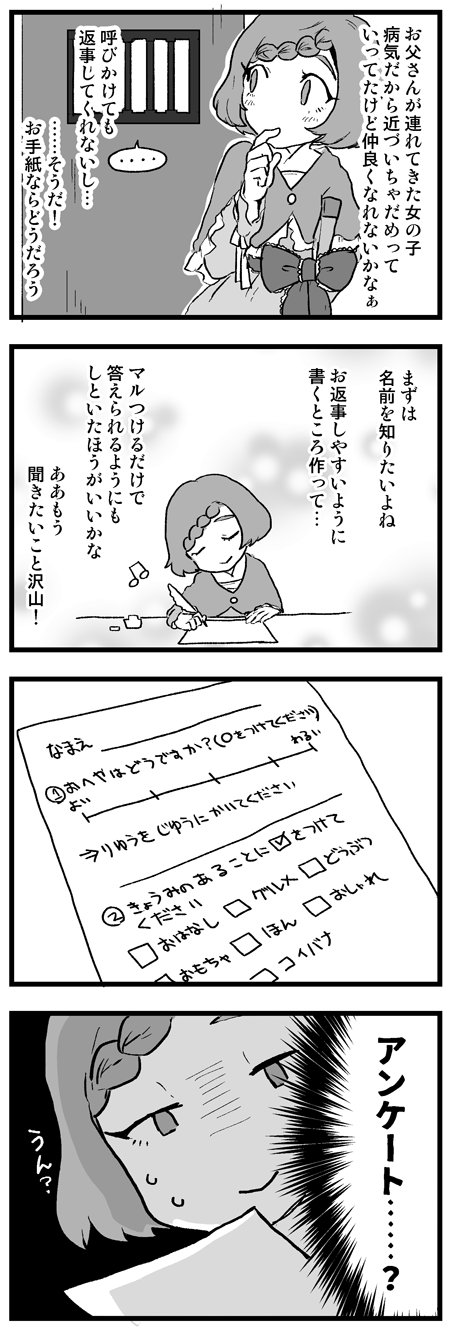 お父さんが連れてきた女の子
病気だから近づいちゃだめって
いってたけど仲良くなれないかなぁ
呼びかけても
返事してくれないし…
……そうだ！
お手紙ならどうだろう
まずは
名前を知りたいよね
お返事しやすいように
書くところ作って…
マルつけるだけで
答えられるようにも
しといたほうがいいかな
ああもう
聞きたいこと沢山！
なまえ
①おへやはどうですか？(○をつけてください)
よい
わるい
⇒りゆうをじゆうにかいてください
②きょうみのあることに☑をつけて
ください
□おはなし □グルメ □どうぶつ
□おもちゃ □ほん □おしゃれ
□コイバナ
アンケート……？
うん？